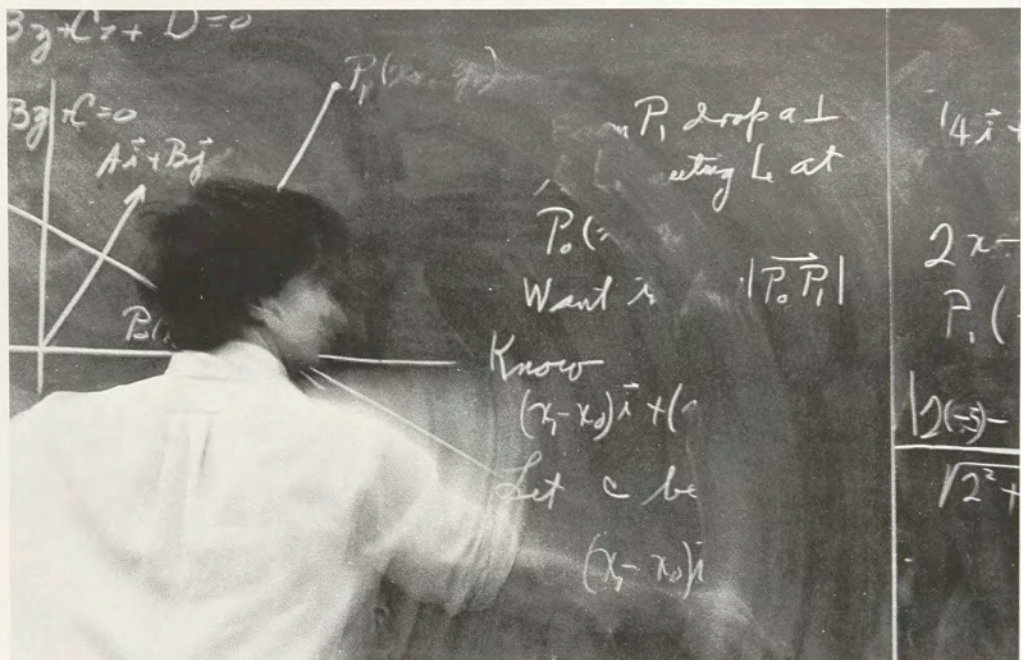 By + Cz + D = 0
By + C = 0
A i⃗ + B j⃗
P₁(
P₀(
P₁ drop a ⊥
L at
P₀(
Want |P₀P₁|
Know
(x₁ - x₀) i⃗ + (
Let c be
(x₁ - x₀) i
1/4 i⃗ +
2x -
P₁(
|2(-5) -
√2² +